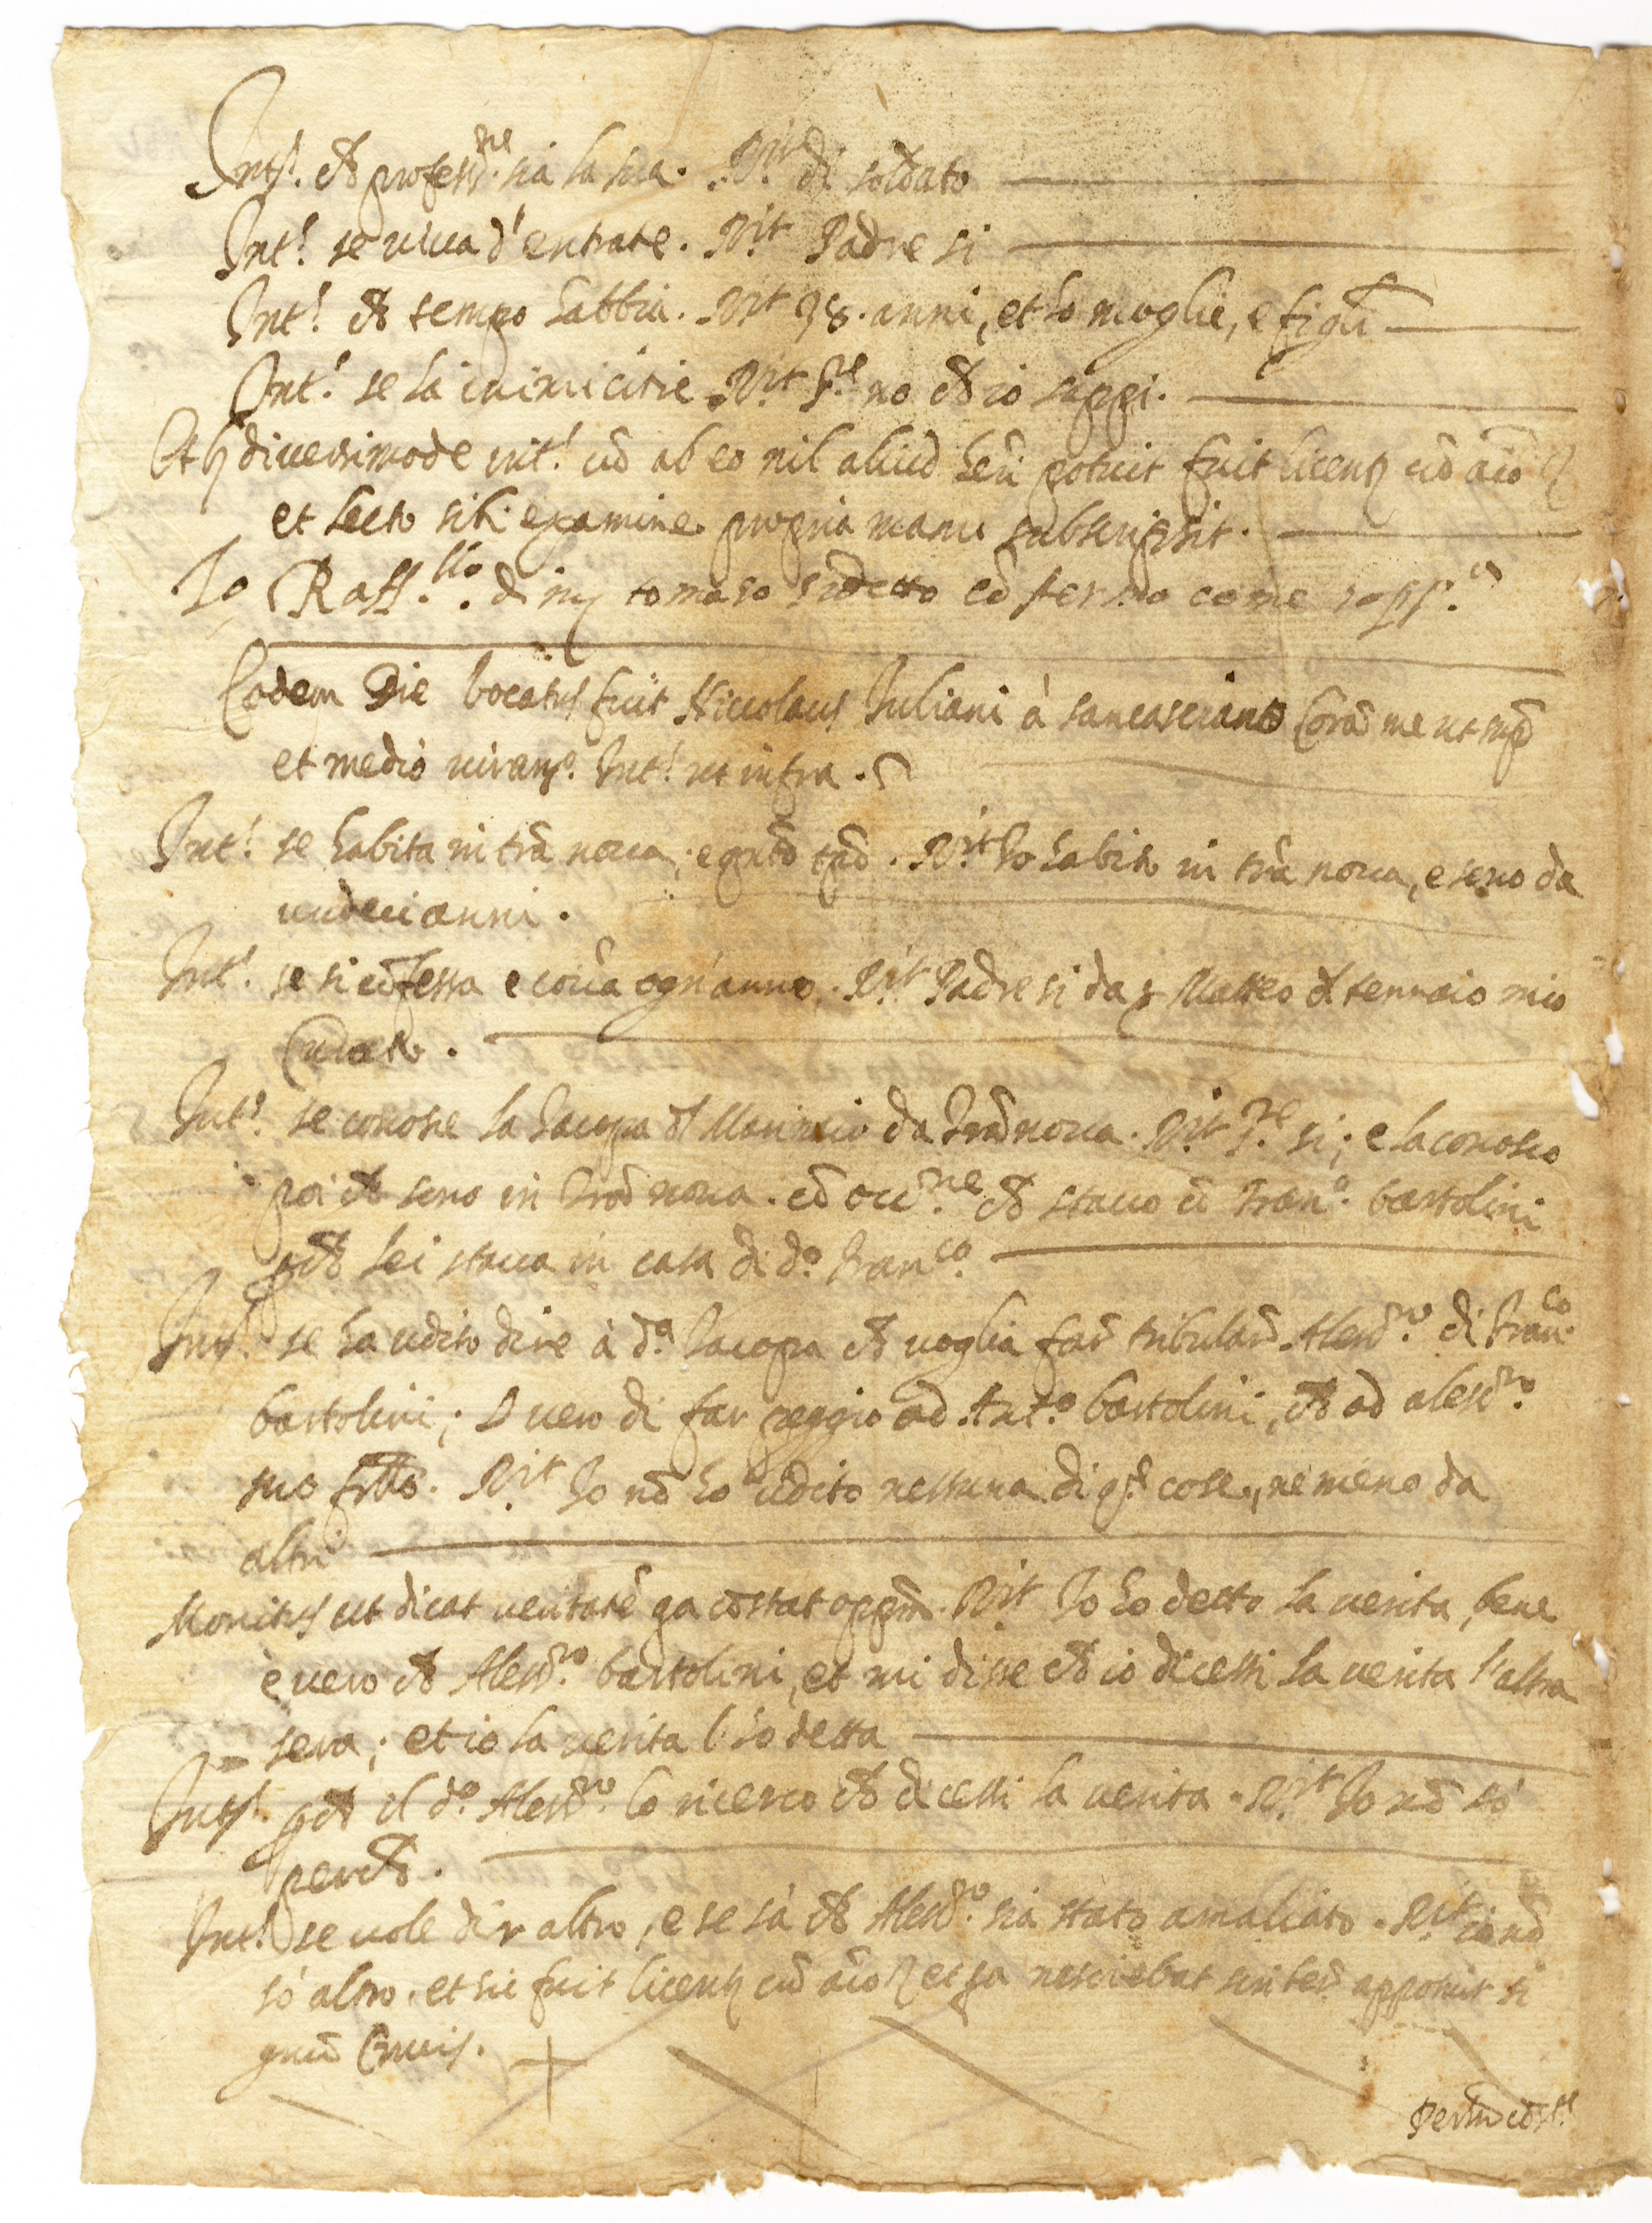 Int.s che profess.ne sia la sua. R.it di soldato
Int.s se viva d'entrate. R.it Padre si
Int.s che tempo habbia. R.it 38. anni, et ho moglie, e figli
Int.s se ha inimicitie R.it P.re no che io sappi.
diversimode int.s cũ ab eo nil aliud potuit fuit licent. cũ aĩo
et lecto sibi examine propria manu subscripsit.
Io Raff.llo di tomaso sudetto cõfermo come sopp.a
Eodem Die vocatus fuit Niccolaus Juliani à sancasciano Corã me ut sup.
et medio iuram.o Int.s ut infra.
Int.s se habita in trã nova, e quãto tpõ. R.it Io habito in trã nova, e sono da
undeci anni.
Int.s se si cõfessa e comũca ogn'anno. R.it Padre si da Matteo del tennaio mio
Curato.
Int.s se conosce la Jacopa del da trã nova. R.it P.re si; e la conosco
poi che sono in trã nova. cõ occ.ne che stavo cõ Fran.o bartolini
p che lei stava in casa di d.o Fran.co
Int.s se ha udito dire à d.a Jacopa che voglia far tribular Aless.ro di Fran.co
bartolini; O vero di far peggio ad Ant.o bartolini, che ad aless.ro
suo frllo. R.it Io nõ ho udito nessuna di q.e cose, ne meno da
altri
Monitus ut dicat veritatẽ qa cõstat oppm. R.it Io ho detto la verita, bene
è vero che Aless.ro bartolini, et mi disse che io dicessi la verita l'altra
sera; et io la verita l'ho detta
Int.s p che il d.o Aless.ro lo ricerco che dicessi la verita. R.it Io nõ só
perche.
Int.s se vole dir altro, e se sà che Aless.ro sia stato amaliato. R.it io nõ
só altro. et sic fuit licent. cũ aĩo et qa nesciebat scriber apposuit si
gnũ Crucis. +